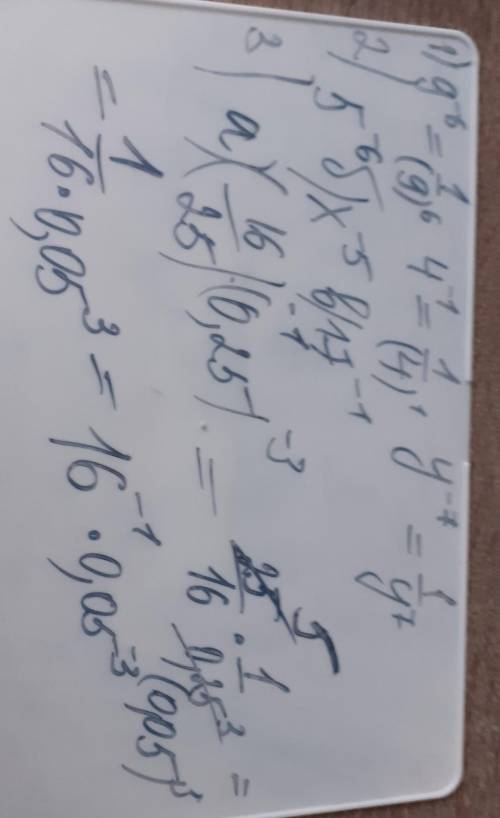 1) 9⁻⁶ = 1/(9)⁶ 4⁻¹ = 1/(4)¹ y⁻⁷ = 1/y⁷
2) 5⁻⁶ б) x⁻⁵ в) 17⁻¹
3) а) (16/25)⁻¹ · (0,25)⁻³ = 25/16 · 1/0,25³ =
5
= 1/16 · 0,05³ = 16⁻¹ · 0,05⁻³ (0,05)³